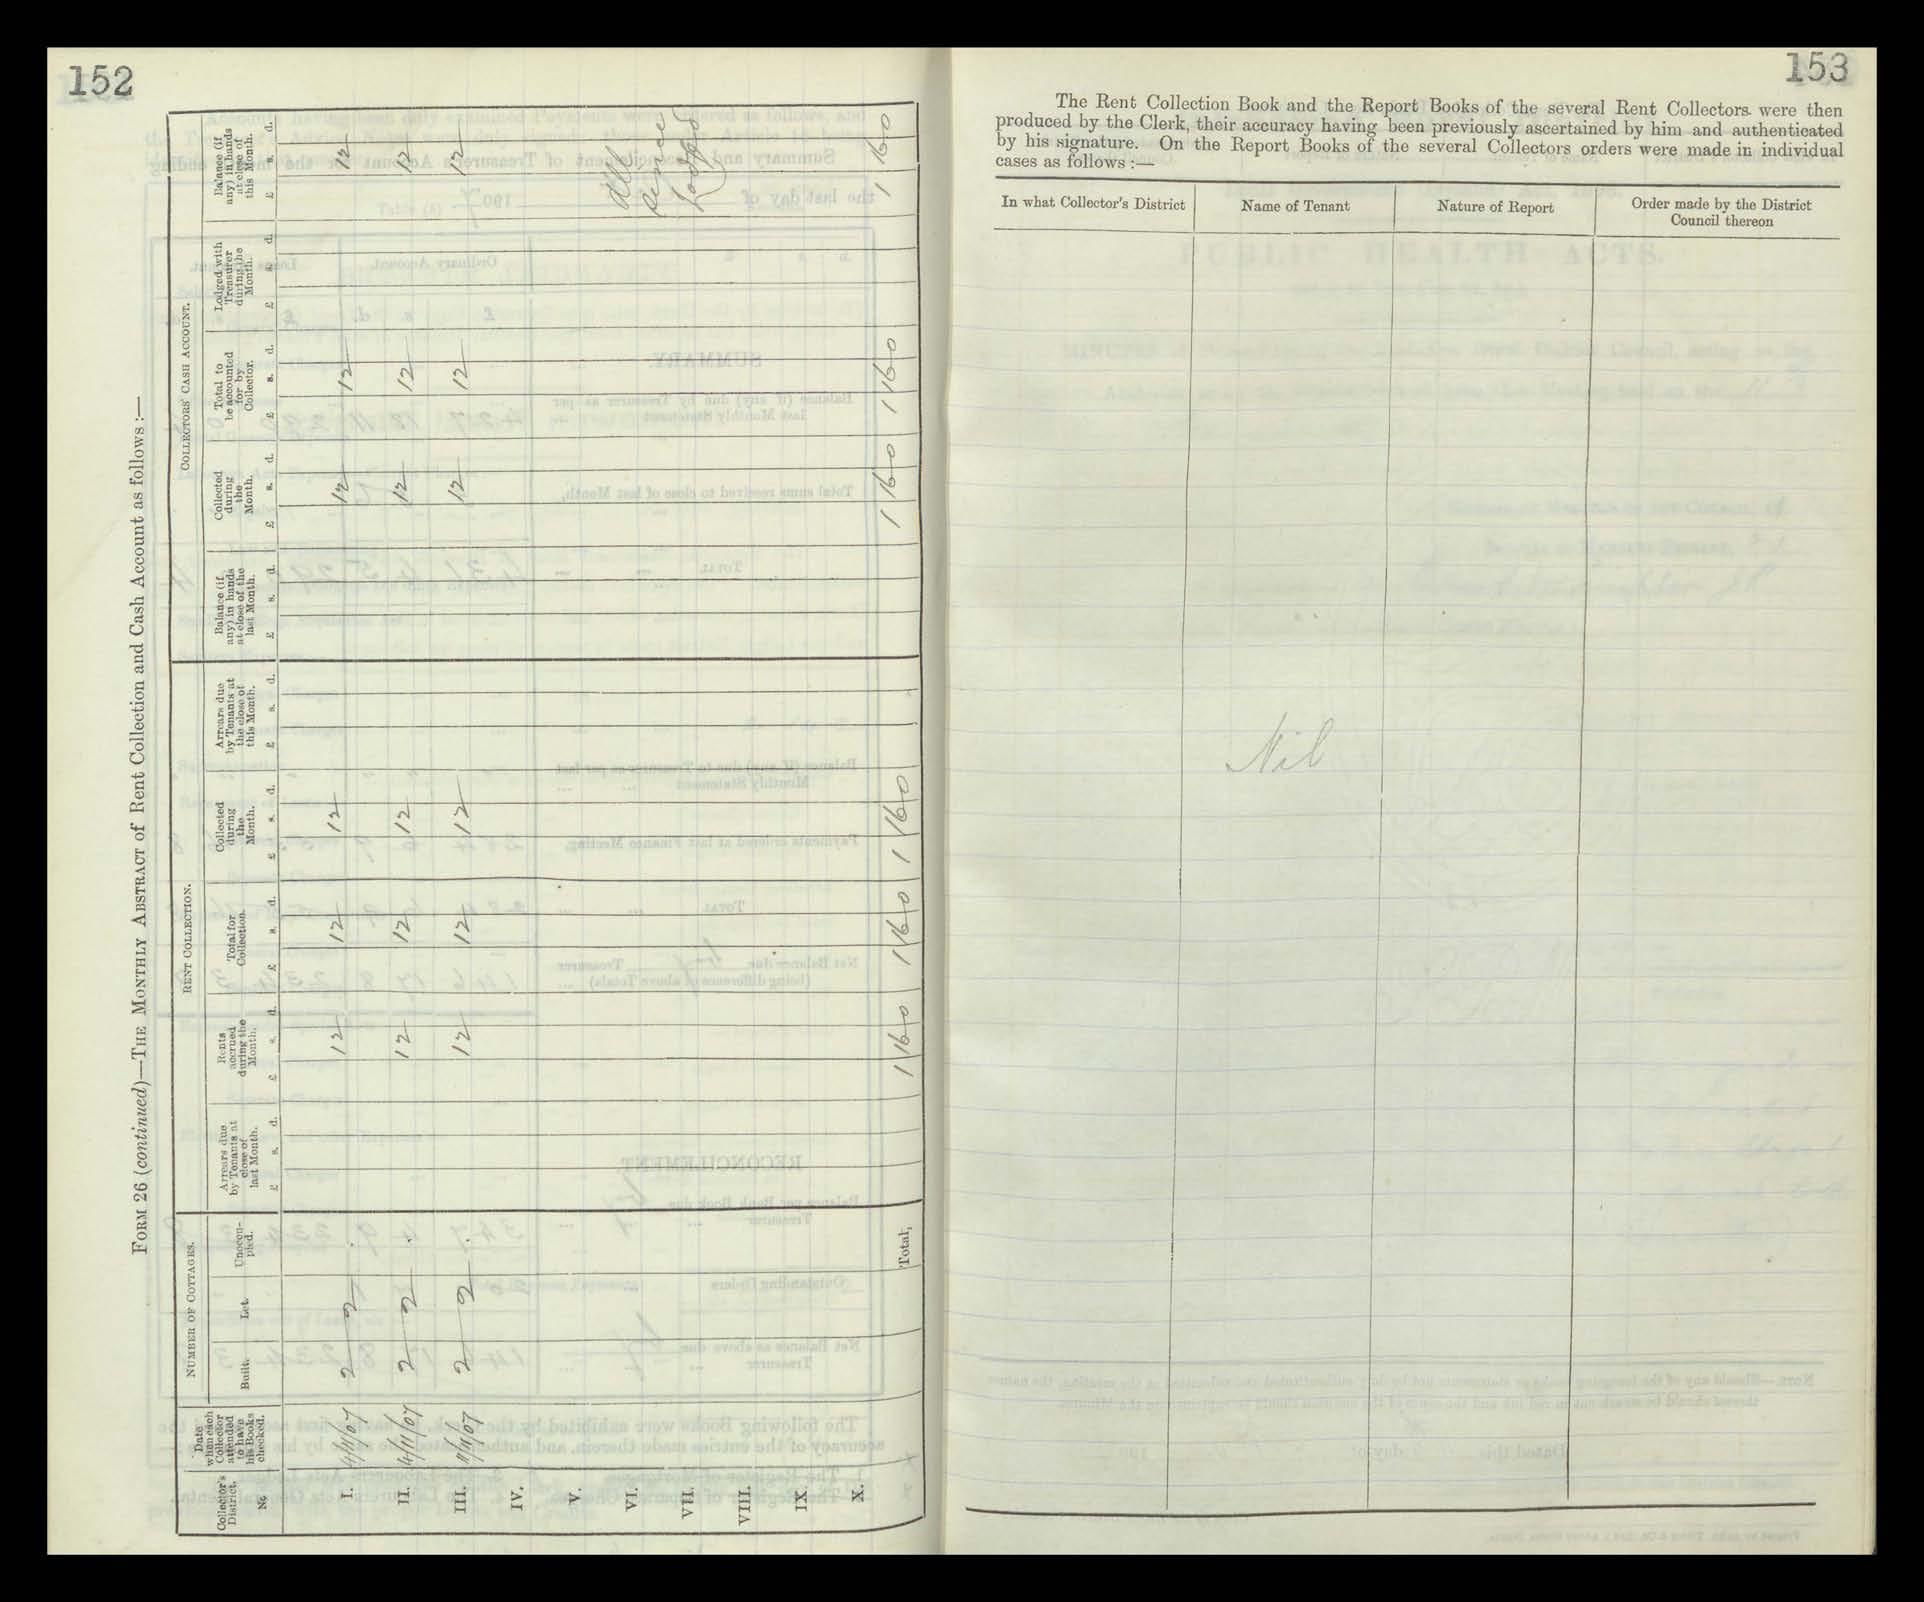 152
FORM 26 (continued)—THE MONTHLY ABSTRACT of Rent Collection and Cash Account as follows :—
NUMBER OF COTTAGES.
RENT COLLECTION.
COLLECTORS' CASH ACCOUNT.
Collector's District. No.
Date when each Collector attended to have his Books checked.
Built.
Let.
Unoccu-pied.
Arrears due by Tenants at close of last Month. £ s. d.
Rents accrued during the Month. £ s. d.
Total for Collection. £ s. d.
Collected during the Month. £ s. d.
Arrears due by Tenants at the close of this Month. £ s. d.
Balance (if any) in hands at close of the last Month. £ s. d.
Collected during the Month. £ s. d.
Total to be accounted for by Collector. £ s. d.
Lodged with Treasurer during the Month. £ s. d.
Balance (if any) in hands at close of this Month. £ s. d.
I. 4/11/07 2 2 . 12 12 12 12 12 12
II. 4/11/07 2 2 . 12 12 12 12 12 12
III. 11/11/07 2 2 . 12 12 12 12 12 12
IV.
V.
VI. All
VII. since
lodged
VIII.
IX.
X.
Total, 1 16 0 1 16 0 1 16 0 1 16 0 1 16 0 1 16 0
153
The Rent Collection Book and the Report Books of the several Rent Collectors were then
produced by the Clerk, their accuracy having been previously ascertained by him and authenticated
by his signature. On the Report Books of the several Collectors orders were made in individual
cases as follows :—
In what Collector's District
Name of Tenant
Nature of Report
Order made by the District
Council thereon
Nil